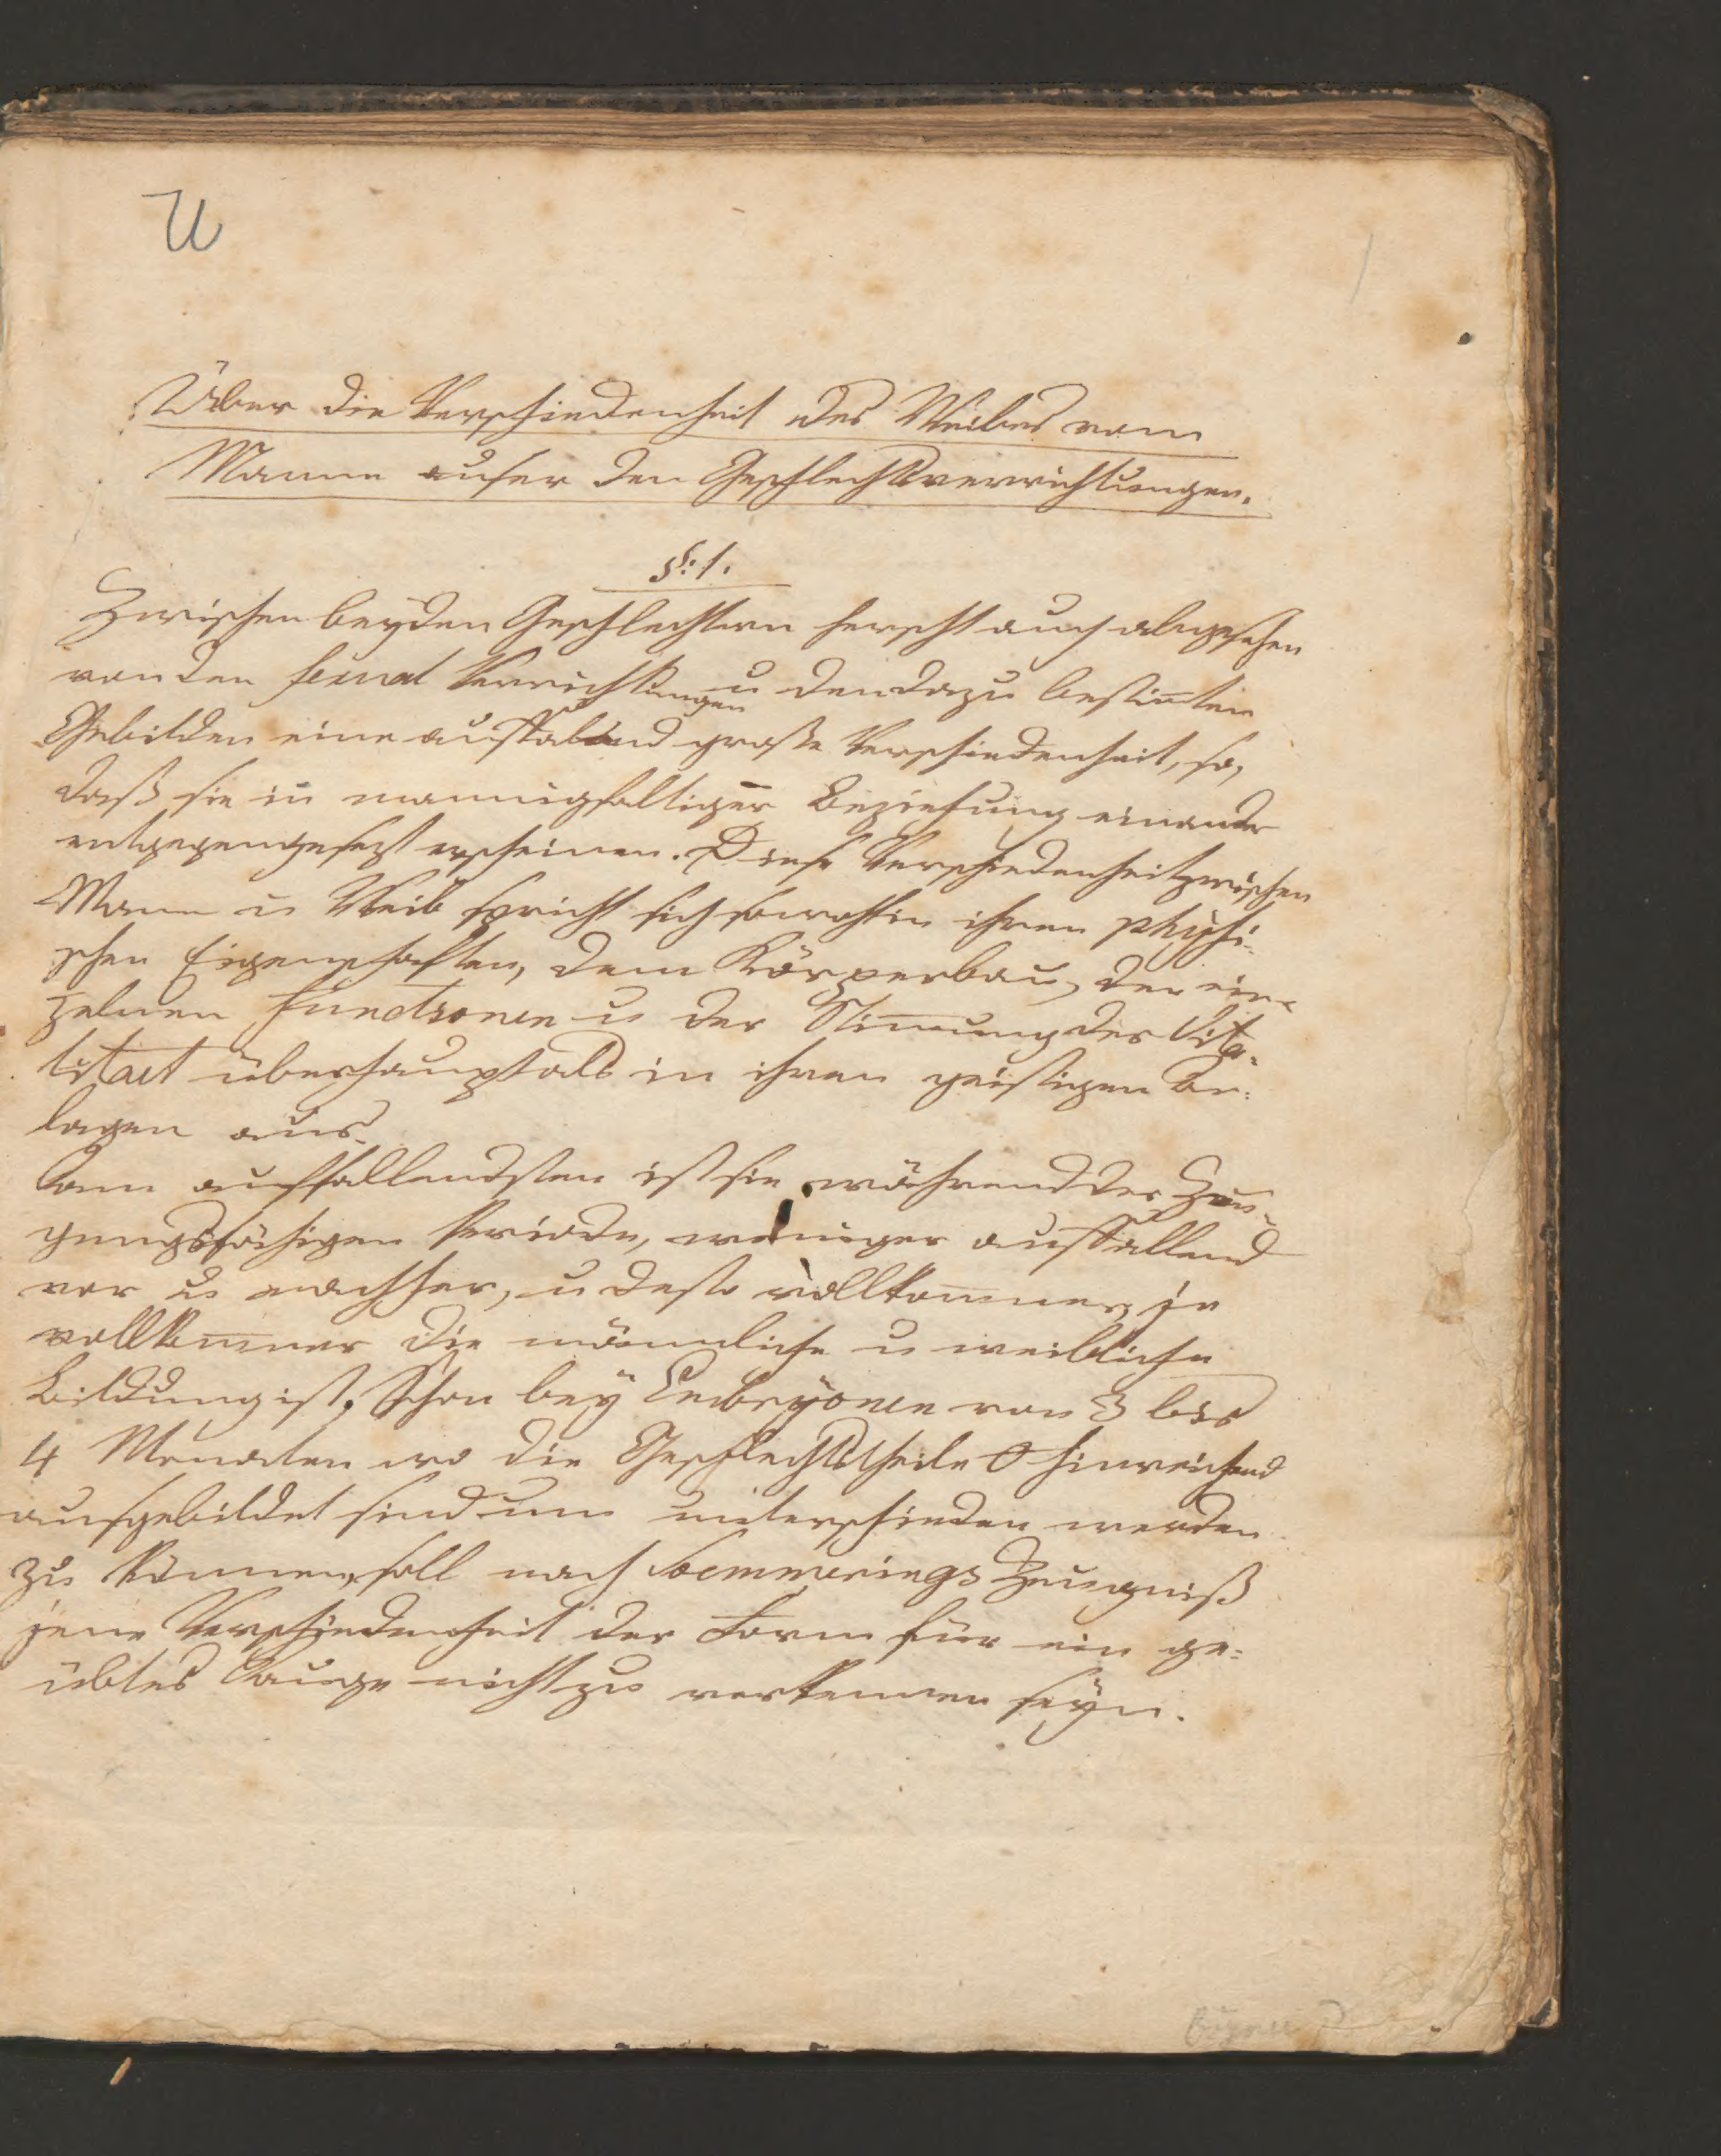 U
Über die Verschiedenheit des Weibes vom
Manne auser den Geschlechtsverrichtungen.
§: 1.
Zwischen beyden Geschlechtern herscht auch abgesehen
von den sexual Verrichtungen u den dazu bestim̅ten
Gebilden eine auffallend große Verschiedenheit, so,
daß sie in mannigfaltiger Beziehung einander
entgegengesezt erscheinen. Diese Verschiedenheit zwischen
Mann u Weib spricht sich sowohl in ihren physi-
schen Eigenschaften, dem Körperbau, der ein-
zelnen Functionen u der Stim̅ung der Vita-
litaet überhaupt als in ihren geistigen An-
lagen aus.
Am auffallendsten ist sie während der Zeu-
gungsfähigen Periode, weniger auffallend
vor u nachher, u desto vollkom̅ner, je
vollkom̅ner die männliche u weibliche
Bildung ist. Schon bey Embryonen von 3 bis
4 Monaten wo die Geschlechtstheile 0 hinreichend
ausgebildet sind um unterschieden werden
zu können, soll nach Soemmerings Zeugniß
jene Verschiedenheit der Form für ein ge-
übtes Auge nicht zu verkennen seyn.